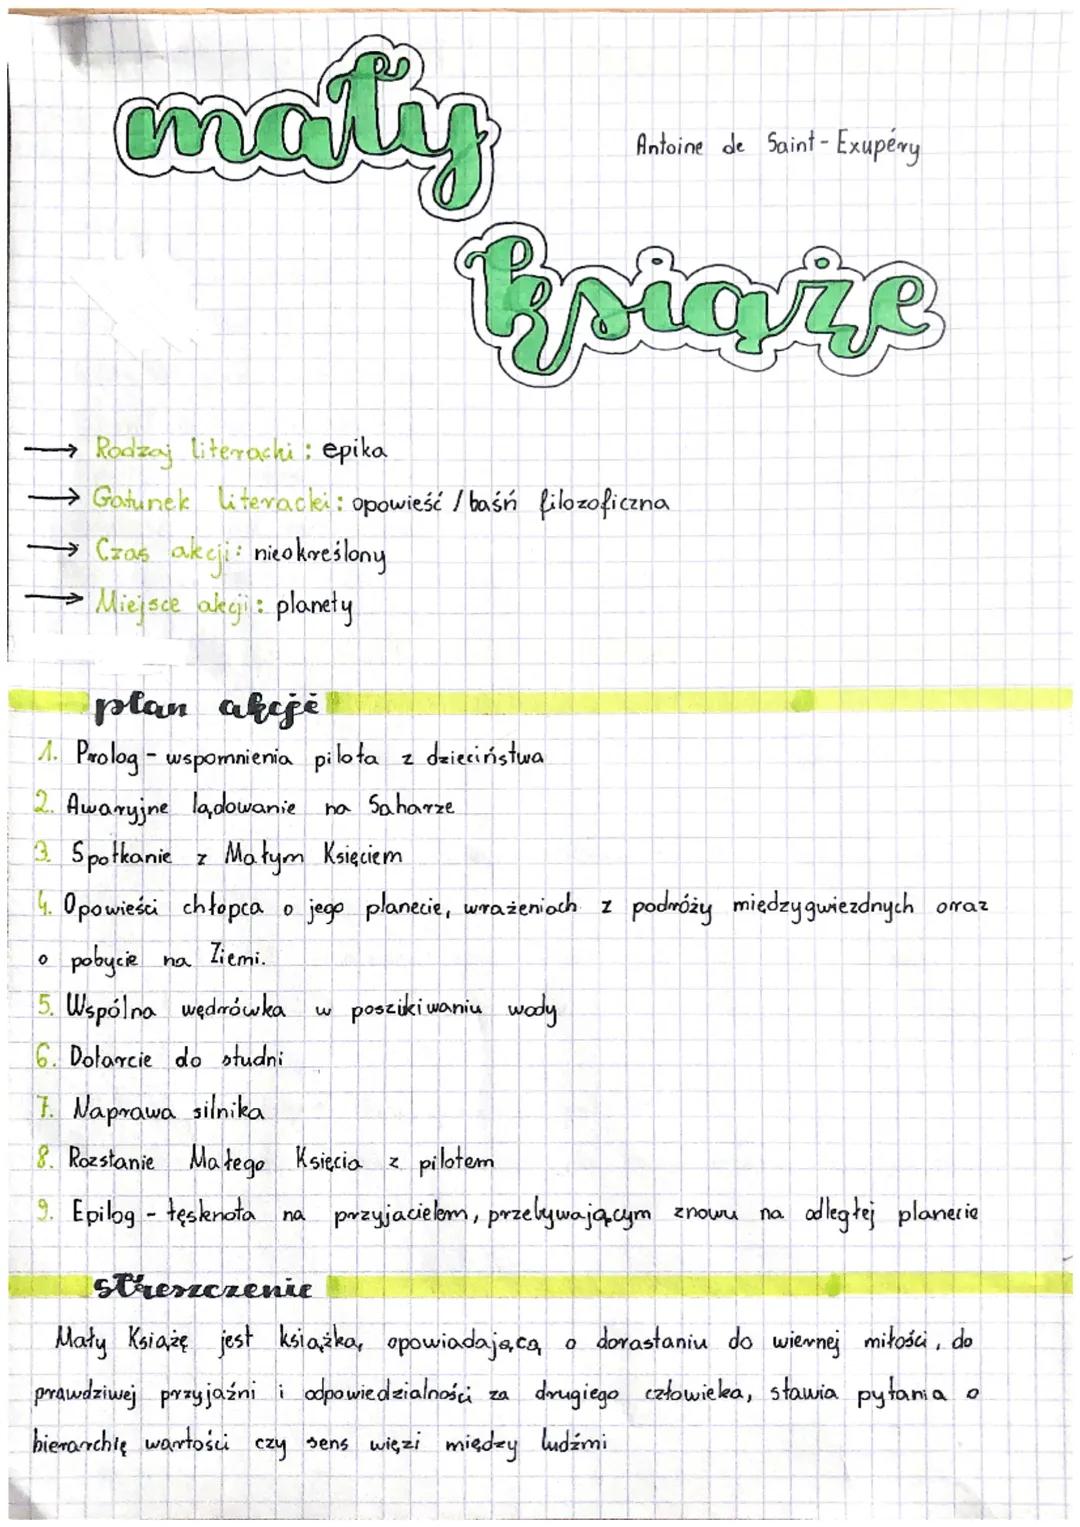 mały
Antoine de Saint-Exupéry
książe
→ Rodzaj literacki: epika
→ Gatunek literacki: opowieść / baśń filozoficzna
→ Czas akcji: nieokreślony
→ Miejsce akcji: planety
plan akcji
1. Prolog - wspomnienia pilota z dzieciństwa
2. Awaryjne lądowanie na Saharze
3. Spotkanie z Małym Księciem
4. Opowieści chłopca o jego planecie, wrażeniach z podróży międzygwiezdnych oraz
o pobycie na Ziemi.
5. Wspólna wędrówka w poszikiwaniu wody
6. Dotarcie do studni
7. Naprawa silnika
8. Rozstanie Małego Księcia z pilotem
9. Epilog - tęsknota na przyjacielem, przebywającym znowu na odległej planecie
streszczenie
Mały Książę jest książką, opowiadającą o dorastaniu do wiernej miłości, do
prawdziwej przyjaźni i odpowiedzialności za drugiego człowieka, stawia pytania o
hierarchię wartości czy sens więzi między ludźmi